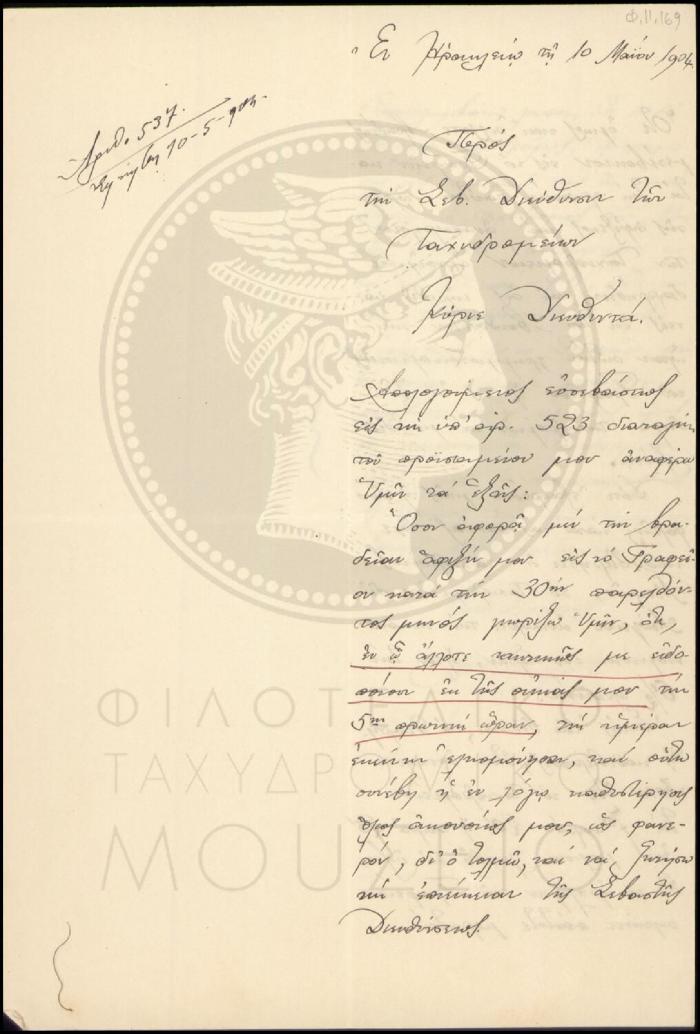 Φ.11.169
Ἐν Ἡρακλείῳ τῇ 10 Μαΐου 1904.
Ἀριθ. 537.
10-5-904
Πρὸς
τὴν Σεβ. Διεύθυνσιν τῶν
Ταχυδρομείων
Κύριε Διευθυντά.
Ἀπολογούμενος εὐσεβάστως
εἰς τὴν ὑπ' ἀρ. 523 διαταγὴν
τοῦ προϊσταμένου μου ἀναφέρω
Ὑμῖν τὰ ἑξῆς:
Ὅσον ἀφορᾷ μὲν τὴν βρα-
δεῖαν ἄφιξίν μου εἰς τὸ Γραφεῖ-
ον κατὰ τὴν 30ὴν παρελθόν-
τος μηνός γνωρίζω Ὑμῖν, ὅτι,
ἐν ᾧ ἄλλοτε τακτικῶς με εἰδο-
ποίουν ἐκ τῆς οἰκίας μου τὴν
5ην πρωϊνὴν ὥραν, τὴν ἡμέραν
ἐκείνην ἐλησμόνησαν, καὶ οὕτω
συνέβη ἡ ἐν λόγῳ καθυστέρησις
ὅλως ἀκουσίως μου, ὡς φανε-
ρόν, δι' ὃ τολμῶ, καὶ νὰ ζητήσω
τὴν ἐπιείκειαν τῆς Σεβαστῆς
Διευθύνσεως.
ΦΙΛΟΤΕΛΙΚΟ
ΤΑΧΥΔΡΟΜΙΚΟ
ΜΟΥΣΕΙΟ